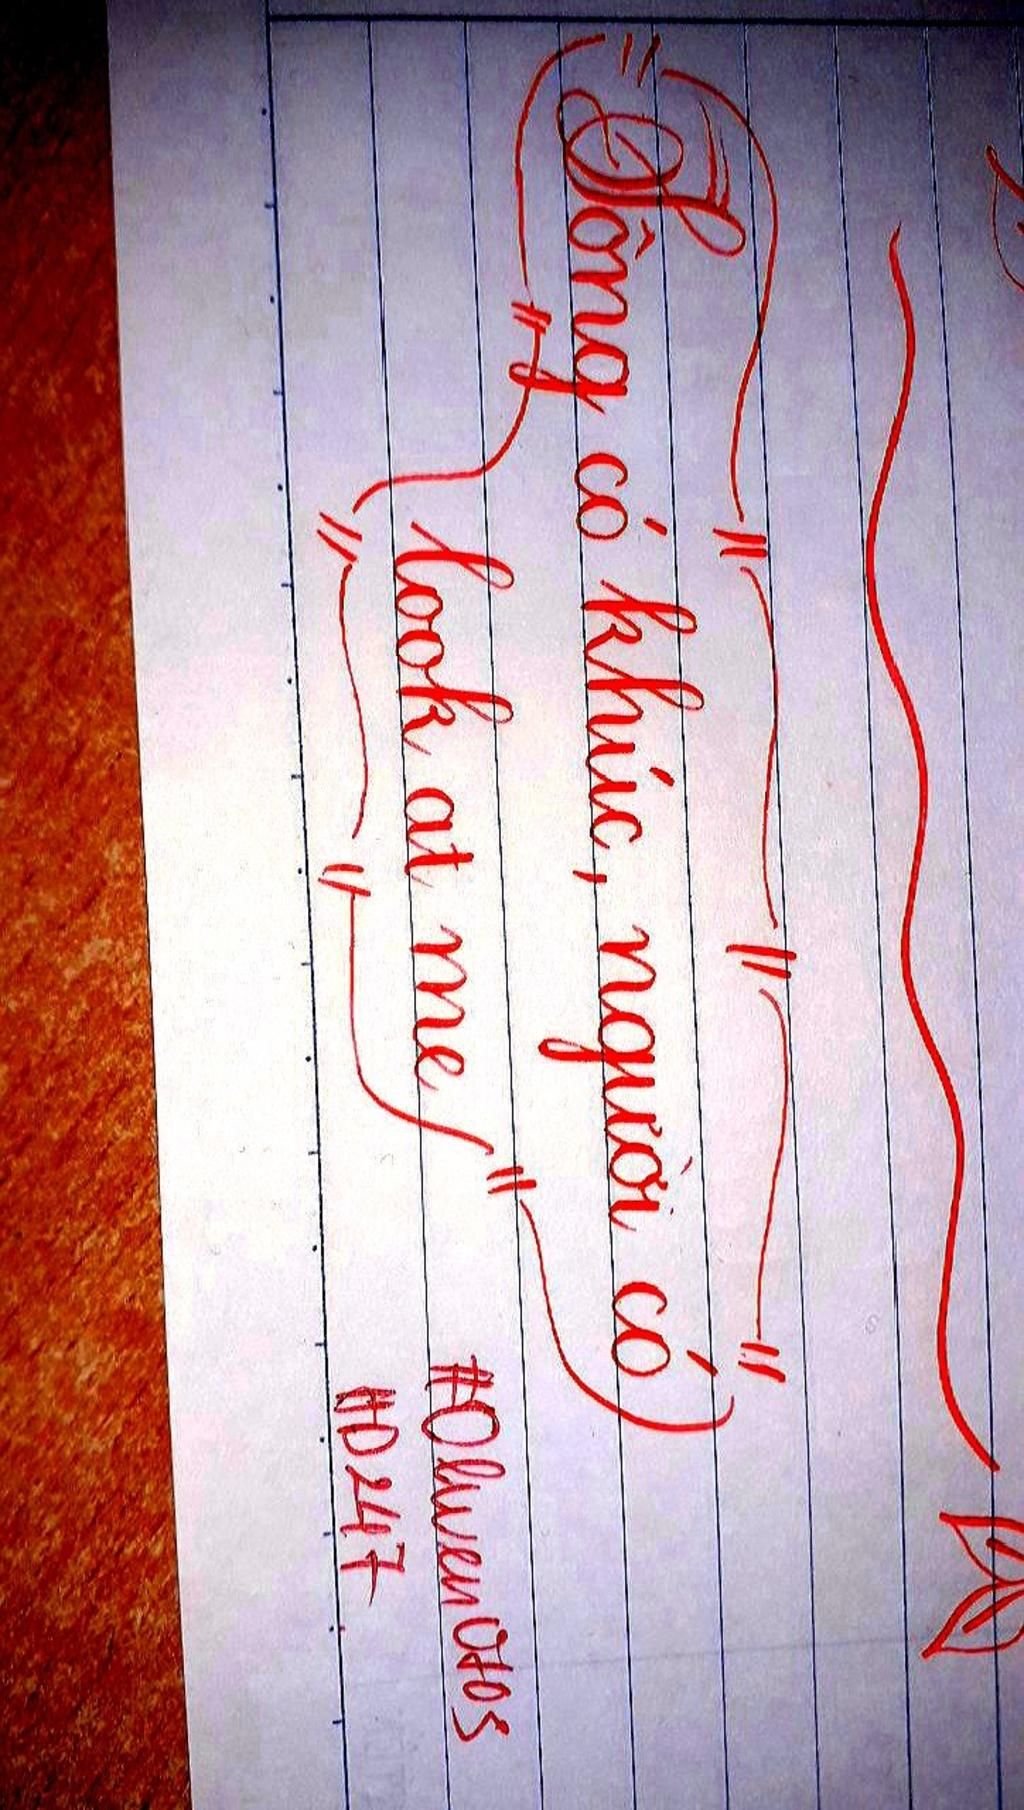 Sông có khúc, người có
look at me
#Oluven0tos
#D247